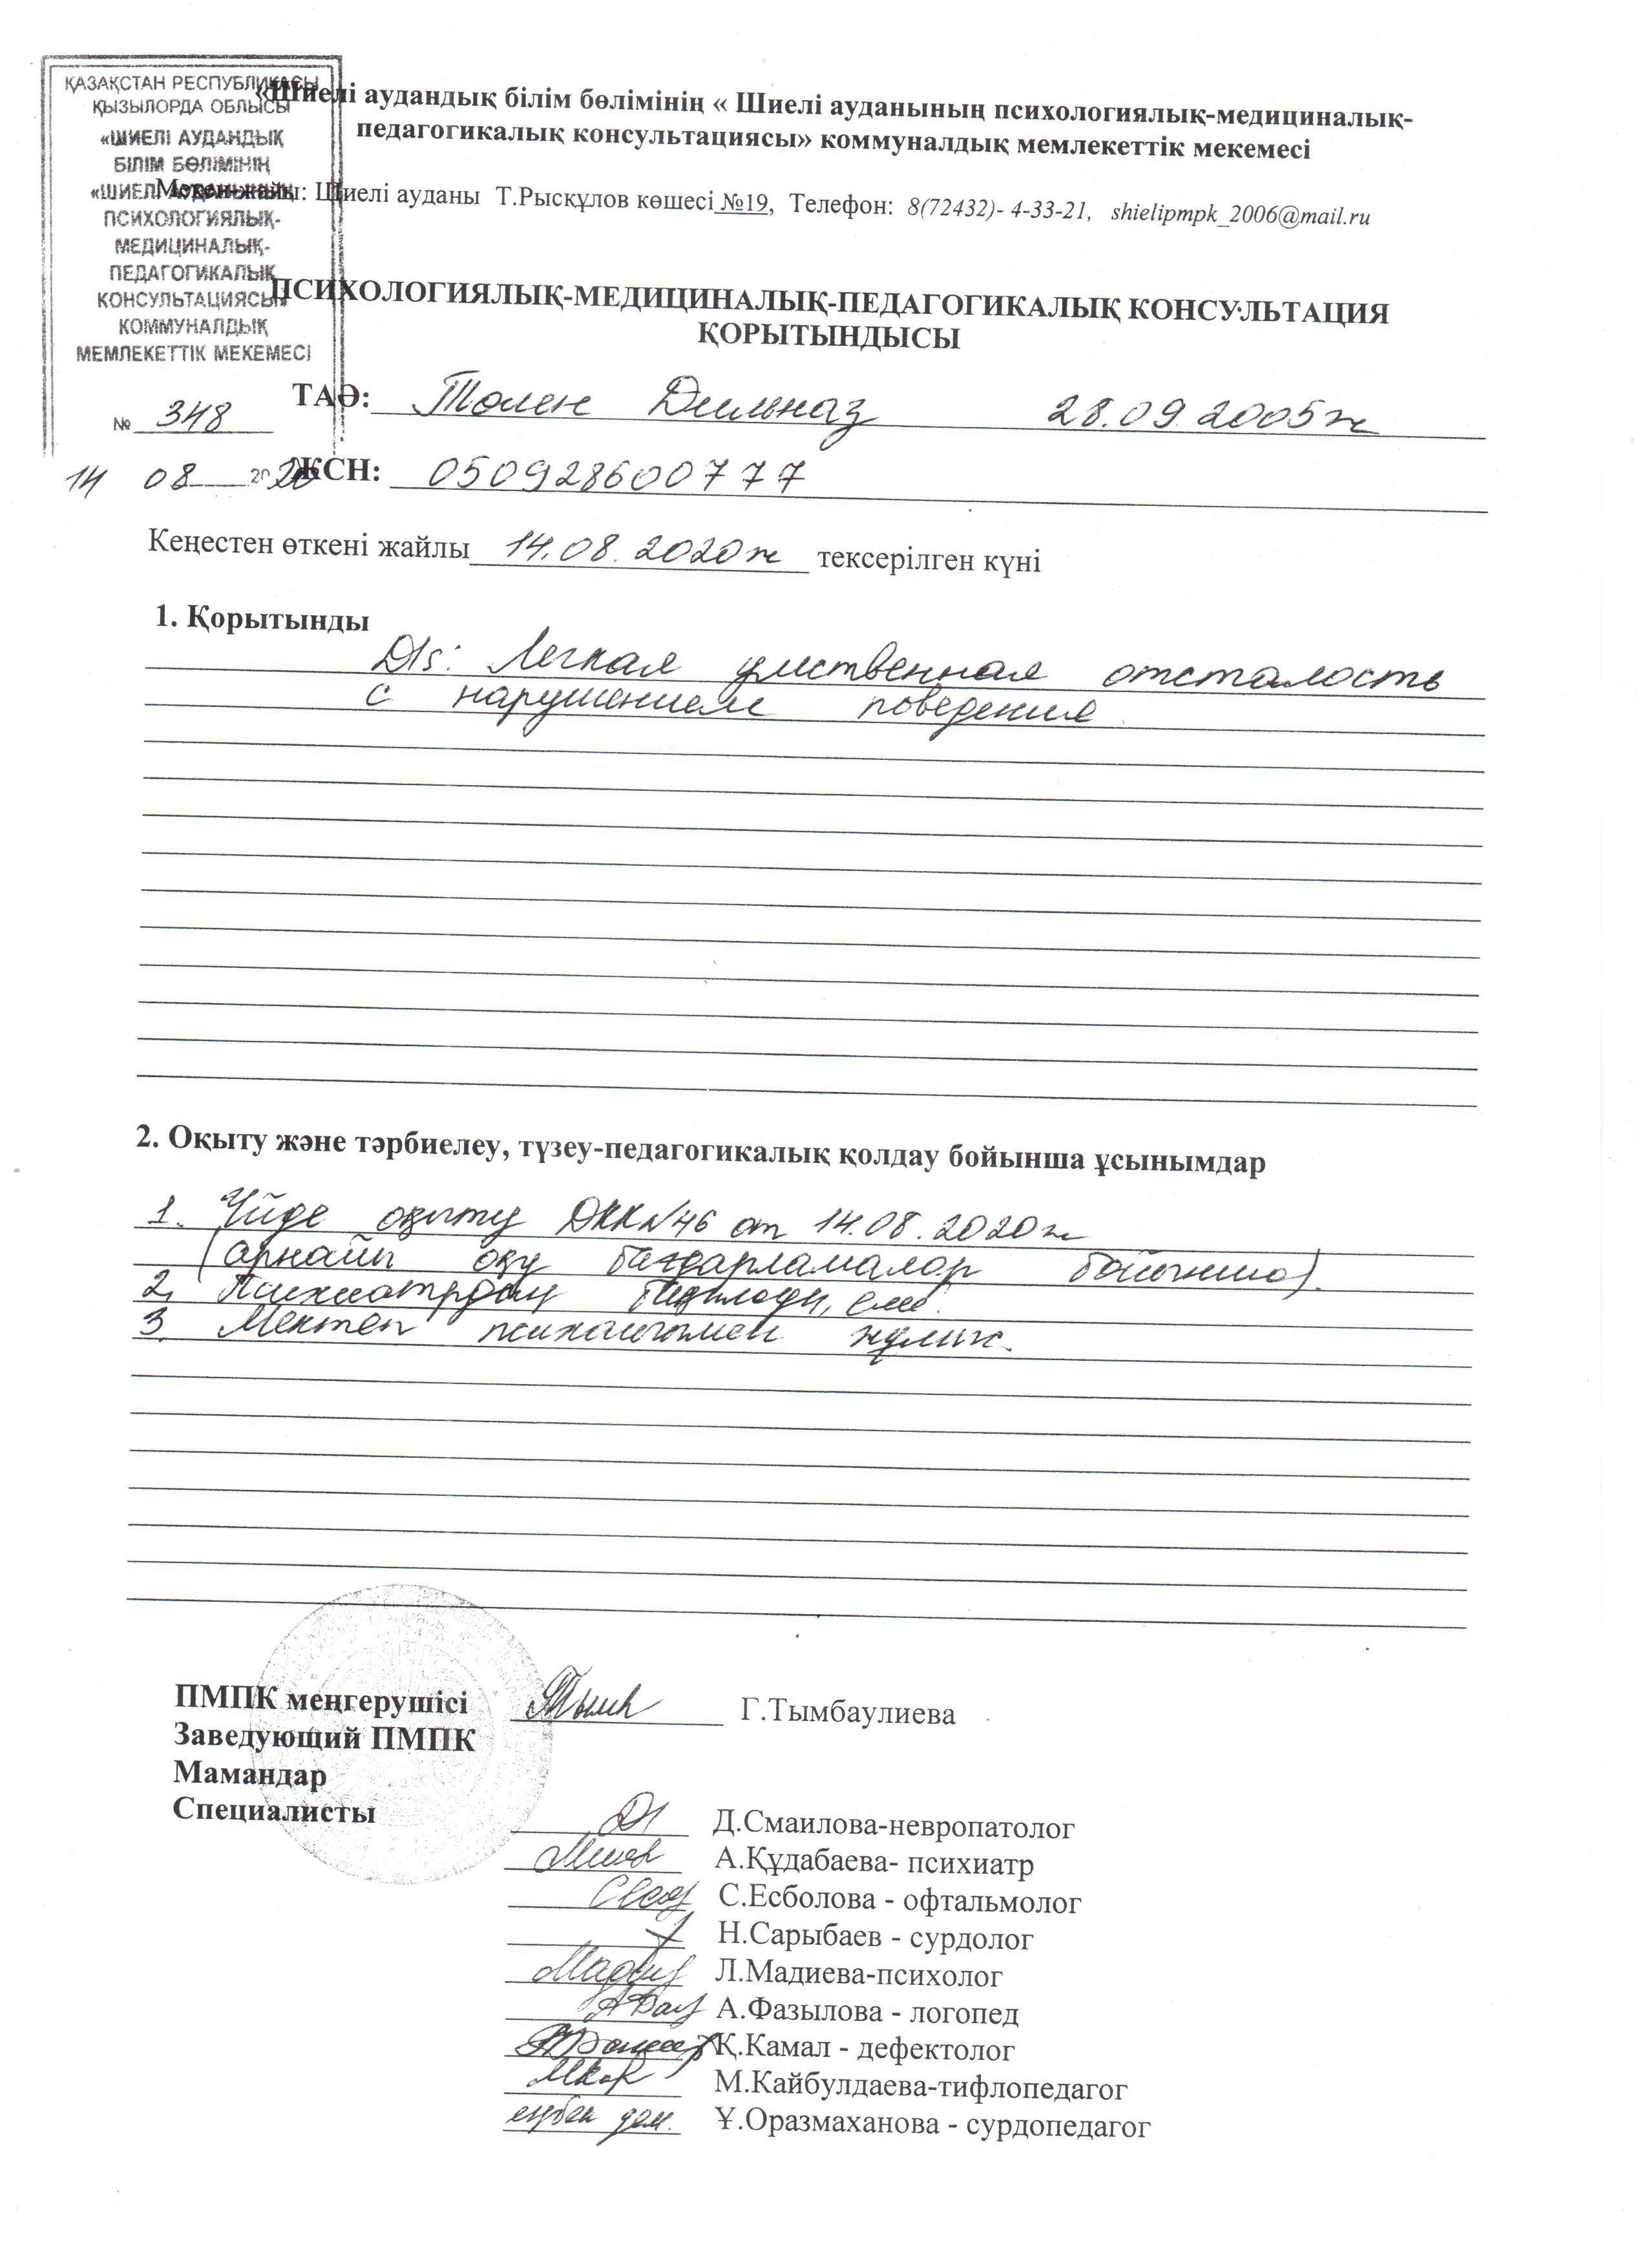 ҚАЗАҚСТАН РЕСПУБЛИКАСЫ
ҚЫЗЫЛОРДА ОБЛЫСЫ
«ШИЕЛІ АУДАНДЫҚ
БІЛІМ БӨЛІМІНІҢ
«ШИЕЛІ АУДАНЫНЫҢ
ПСИХОЛОГИЯЛЫҚ-
МЕДИЦИНАЛЫҚ-
ПЕДАГОГИКАЛЫҚ
КОНСУЛЬТАЦИЯСЫ»
КОММУНАЛДЫҚ
МЕМЛЕКЕТТІК МЕКЕМЕСІ
№ 348
14 08 2020
«Шиелі аудандық білім бөлімінің « Шиелі ауданының психологиялық-медициналық-
педагогикалық консультациясы» коммуналдық мемлекеттік мекемесі
Мекен-жайы: Шиелі ауданы Т.Рысқұлов көшесі №19, Телефон: 8(72432)- 4-33-21, shielipmpk_2006@mail.ru
ПСИХОЛОГИЯЛЫҚ-МЕДИЦИНАЛЫҚ-ПЕДАГОГИКАЛЫҚ КОНСУЛЬТАЦИЯ
ҚОРЫТЫНДЫСЫ
ТАӘ: Төлен Дильназ 28.09.2005ж
ЖСН: 050928600777
Кеңестен өткені жайлы 14.08.2020ж тексерілген күні
1. Қорытынды
Ds: Легкая умственная отсталость
с нарушением поведения
2. Оқыту және тәрбиелеу, түзеу-педагогикалық қолдау бойынша ұсынымдар
1. Үйде оқыту ДКК№46 от 14.08.2020ж
(арнайы оқу бағдарламалар бойынша).
2. Психиатрдың
3. Мектеп психологымен жұмыс.
ПМПК меңгерушісі Г.Тымбаулиева
Заведующий ПМПК
Мамандар
Специалисты
Д.Смаилова-невропатолог
А.Құдабаева- психиатр
С.Есболова - офтальмолог
Н.Сарыбаев - сурдолог
Л.Мадиева-психолог
А.Фазылова - логопед
Қ.Камал - дефектолог
М.Кайбулдаева-тифлопедагог
еңбек дем. Ұ.Оразмаханова - сурдопедагог